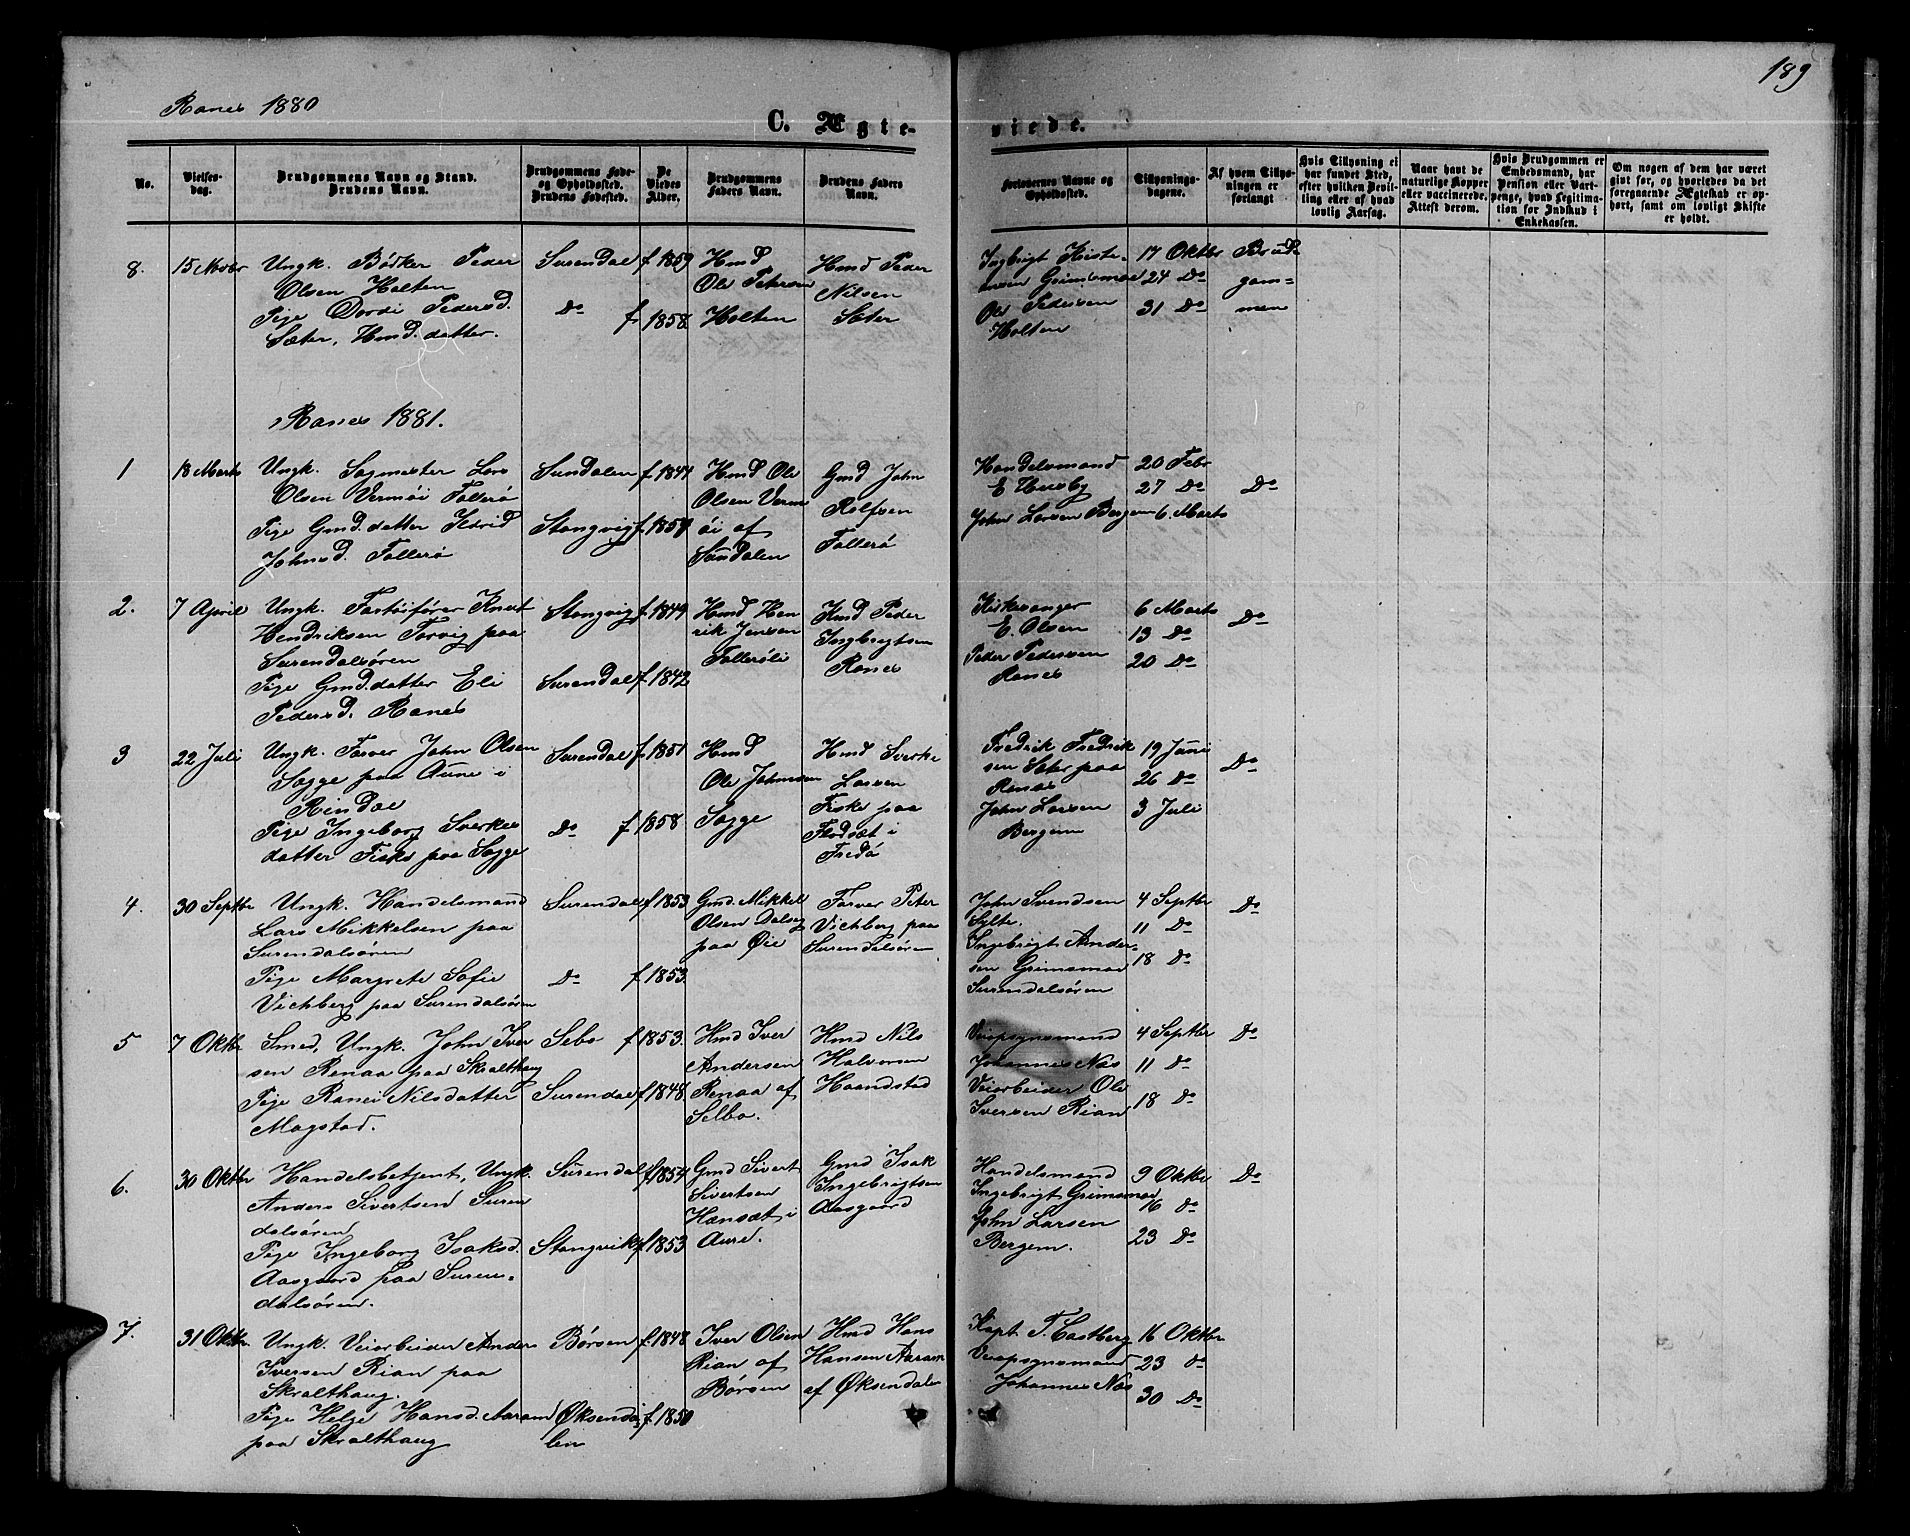 189
Ranes 1880
C. Ægte-
viede.
No.
Vielses-
dag.
Brudgommens Navn og Stand.
Brudens Navn.
Brudgommens Føde-
og Opholdssted.
Brudens Fødested.
De
Viedes
Alder.
Brudgommens
Faders Navn.
Brudens Faders
Navn.
Forlovernes Navne og
Opholdssted.
Tillysnings-
dagene.
Af hvem Tillys-
ningen er
forlangt
Hvis Tillysning ei
har fundet Sted,
efter hvilken Bevil-
ling eller af hvad
lovlig Aarsag.
Naar havt de
naturlige Kopper
eller vaccinerede.
Attest derom.
Hvis Brudgommen er
Embedsmand, har
Pension eller Vart-
penge, hvad Legitima-
tion for Indskud i
Enkekassen.
Om nogen af dem har været
givt før, og hvorledes da det
foregaaende Ægteskab er op-
hørt, samt om lovligt Skifte
er holdt.
8.
15 Novbr
Ungk. Bødker Peder
Olsen Holten
Pige Dordi Pedersd.
Sæter, Hmd. datter.
Surendal
Do
f 1859
f 1858
Hmd
Ole Petersen
Holten
Hmd Peder
Nilsen
Sæter
Ingbrigt Kiste-
Grimsmoe
Ole Pedersen
Holten
17 Oktbr
24 Do
31 Do
Brud-
gom-
men
Ranes 1881.
1
18 Marts
Ungk. Sagmester Lars
Olsen Vermøi Follerø
Pige Gmd. datter Ildrid
Johnsd. Follerø
Sundalen
Stangvig
f. 1844
f. 1857
Hmd Ole
Olsen Verm
øi af
Sundalen
Gmd John
Rolfsen
Follerø
Handelsmand
E Husby
John Larsen Bergem
20 Febr
27 Do
6. Marts
Do
2.
7 April
Ungk. Fartøifører Knut
Hendriksen Torvig paa
Surendalsøren
Pige Gmd. datter Eli
Pedersd. Ranes
Stangvig
Surendal
f. 1849
f. 1842
Hmd Hen
rik Jensen
Follerøli
Gmd Peder
Ingbrigtsen
Ranes
Kirkesanger
E. Olsen
Peder Pedersen
Ranes
6 Marts
13 Do
20 Do
Do
3
22 Juli
Ungk. Farver John Olsen
Sogge paa Aune i
Rindal
Pige Ingeborg Sverkes
datter Fiske paa Sogge
Surendal
Do
f. 1851
f 1858
Hmd
Ole Johnsen
Sogge
Hmd Sverke
Larsen
Fiske paa
Flodsæt i
Fredø
Fredrik Fredrik
sen Sæter paa
Ranes
John Larsen
Bergem
19 Juni
26 Do
3 Juli
Do
4.
30 Septbr
Ungk. Handelsmand
Lars Mikkelsen paa
Surendalsøren
Pige Margrete Sofie
Vichberg paa Surendalsøren
Surendal
Do
f 1853
f 1853.
Gmd Mikkel
Olsen Dalseg
paa Øie
Farver Peter
Vichberg paa
Surendalsøren
John Svendsen
Sylte.
Ingebrigt Ander-
sen Grimsmoe
Surendalsøren
4 Septbr
11 Do
18 Do
Do
5
7 Oktbr
Smed, Ungk. John Iver
sen Renaa paa Skralthaug
Pige Ranei Nilsdatter
Mogstad.
Selbo
Surendal
f 1853.
f 1848
Hmd Iver
Andersen
Renaa af
Selbo.
Hmd Nils
Halvorsen
Haandstad
Veiopsynsmand
Johannes Nas
Veiarbeider Ole
Iversen Rian
4 Septbr
11 Do
18 Do
Do
6.
30 Oktbr
Handelsbetjent, Ungk.
Anders Sivertsen Suren
dalsøren
Pige Ingeborg Isaksd.
Aasgaard paa Suren-
dalsøren.
Surendal
Stangvik
f 1854
f. 1853
Gmd Sivert
Sivertsen
Hansæt i
Aure.
Gmd Isak
Ingebrigtsen
Aasgaard
Handelsmand
Ingebrigt Grimsmoe
John Larsen
Bergem.
9 Oktbr
16 Do
23 Do
Do
7.
31 Oktbr.
Ungk. Veiarbeider Anders
Iversen Rian paa
Skralthaug.
Pige Helge Hansd. Aaram
paa Skralthaug
Børsen
Øksenda
len
f. 1848
f. 1850
Iver Olsen
Rian af
Børsen
Hmd Hans
Hansen Aaram
af Øksendalen
Kapt. T. Castberg
Veiopsynsmand
Johannes Nas
16 Oktbr
23 Do
30 Do